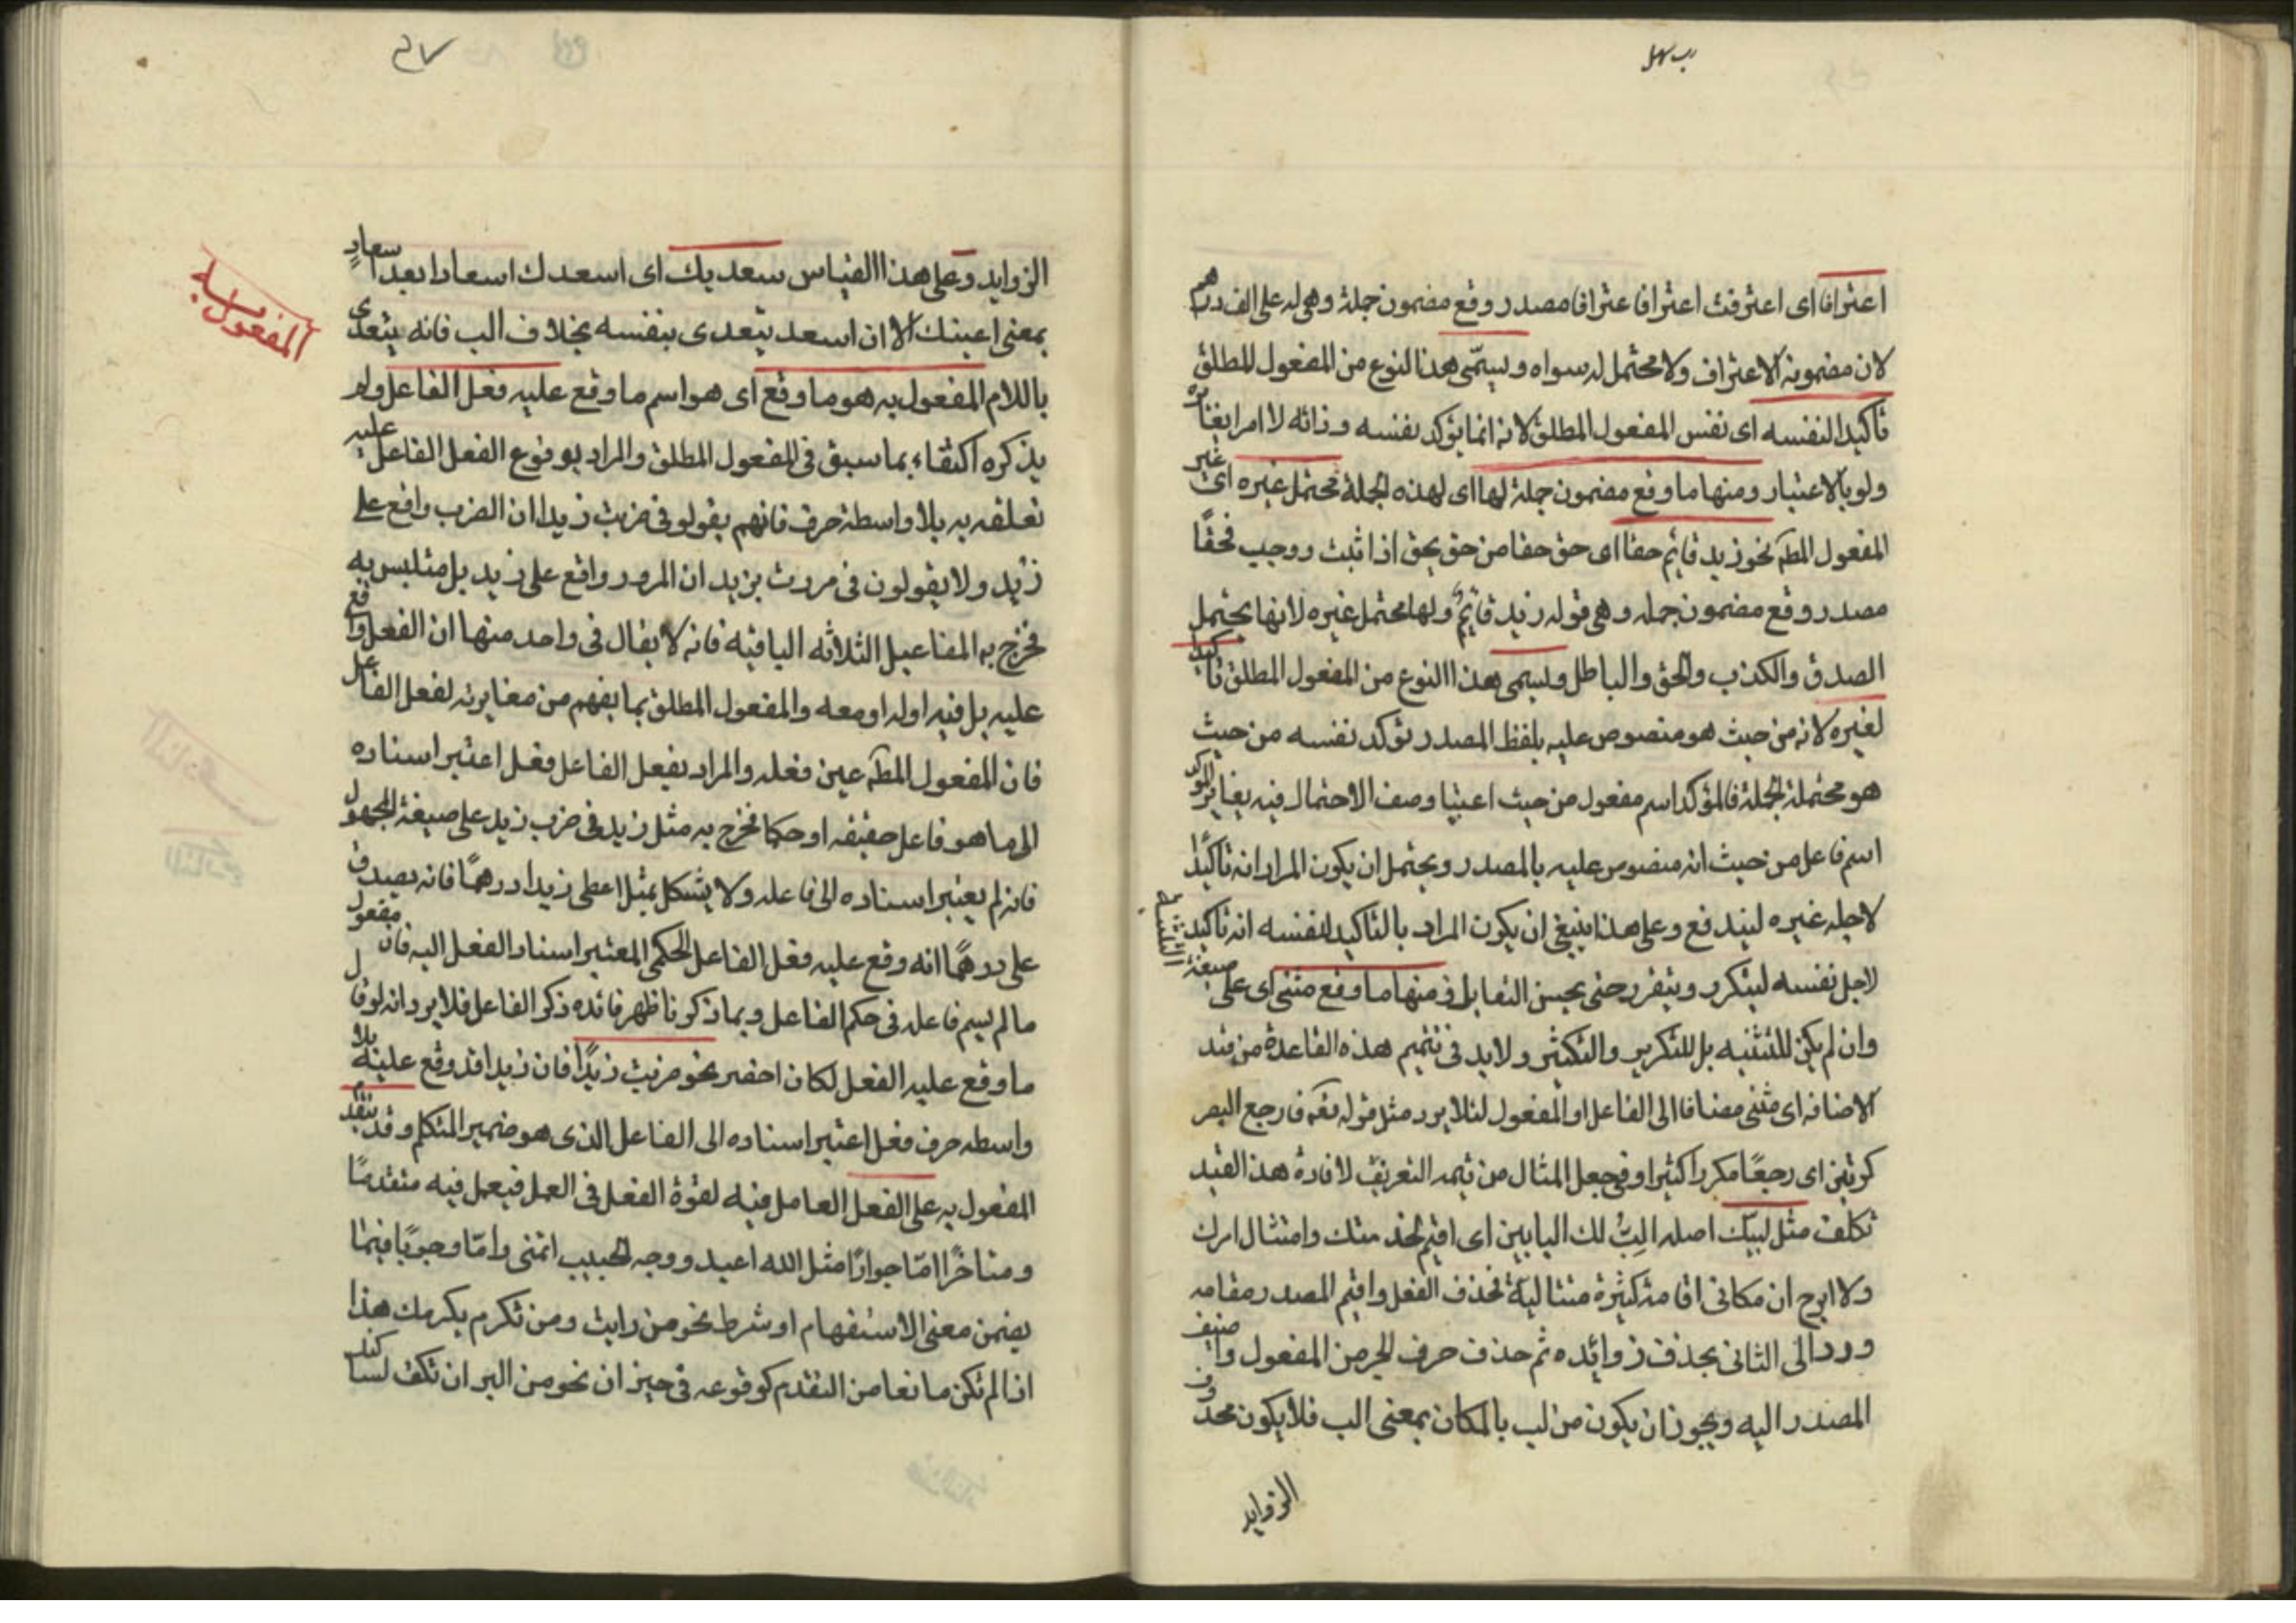 اعترافا اى اعترفت اعترافا عترافا مصدر وقع مضمون جملة وهى له على الف درهم
لان مضمونه الاعتراف ولا محتمل له سواه ويسمّى هذا النوع من المفعول المطلق
تأكيدا لنفسه اى نفس المفعول المطلق لانه انما يؤكد نفسه وذاته لا امرا يغايره
ولو بالاعتبار ومنها ما وقع مضمون جملة لها اى لهذه الجملة محتمل غيره اى غير
المفعول المطه نحو زيد قايم حقا اى حق حقا من حق يحق اذا ثبت ووجب فحقًا
مصدر وقع مضمون جمله وهى قوله زيد قايمٌ ولها محتمل غيره لانها يحتمل
الصدق والكذب والحق والباطل ويسمى هذا النوع من المفعول المطلق تأكيدا
لغيره لانه من حيث هو منصوص عليه بلفظ المصدر يؤكد نفسه من حيث
هو محتملة الجملة فالمؤكد اسم مفعول من حيث اعتبا وصف الاحتمال فيه يغاير المؤكد
اسم فاعل من حيث انه منصوص عليه بالمصدر ويحتمل ان يكون المراد انه تاكيدًا
لاجل غيره ليندفع وعلى هذا ينبغى ان يكون المراد بالتاكيد لنفسه انه تاكيد
لاجل نفسه ليتكرر ويتقرر حتى يحسن التقابل ومنها ما وقع مثنى اى على صيغة التثنية
وان لم يكن للتثنيه بل للتكرير والتكثير ولابد فى تتميم هذه القاعدة من قيد
الاضافه اى مثنى مضافا الى الفاعل او المفعول لئلا يرد مثل قوله تعه فارجع البصر
كرتين اى رجعًا مكررا كثيرا وفى جعل المثال من تتمه التعريف لافادة هذا القيد
تكلف مثل لبيّك اصله الِبُّ لك البابين اى اقيم لخدمتك وامتثال امرك
ولا ابرح ان مكانى اقامة كثيرة متتاليةً فحذف الفعل واقيم المصدر مقامه
ورد الى الثانى بحذف زوائده ثم حذف حرف الجر من المفعول واضيف
المصدر اليه ويجوز ان يكون من لب بالمكان بمعنى الب فلا يكون محذوف
الزوايد
الزوايد وعلى هذا القياس سعديك اى اسعدك اسعادا بعد اسعادٍ
بمعنى اعينك الا ان اسعد يتعدى بنفسه بخلاف الب فانه يتعدى
باللام المفعول به هو ما وقع اى هو اسم ما وقع عليه فعل الفاعل ولم
يذكره اكتفاء بما سبق فى المفعول المطلق والمراد بوقوع الفعل الفاعل عليه
تعلقه به بلا واسطة حرف فانهم يقولو فى ضربت زيدا ان الضرب واقع على
زيد ولا يقولون فى مررت بزيد ان المرور واقع على زيد بل متلبس به
فخرج به المفاعيل الثلاثه الباقية فانه لا يقال فى واحد منها ان الفعل واقع
عليه بل فيه اوله او معه والمفعول المطلق بما يفهم من مغايرته لفعل الفاعل
فان المفعول المطه عين فعله والمراد بفعل الفاعل فعل اعتبر اسناده
الى ما هو فاعل حقيقه او حكما فخرج به مثل زيد فى ضرب زيد على صيغة المجهول
فانه لم يعتبر اسناده الى فاعله ولا يشكل بمثل اعطى زيدا درهمًا فانه يصدق
على درهمًا انه وقع عليه فعل الفاعل الحكمى المعتبر اسناد الفعل اليه فان مفعول
ما لم يسم فاعله فى حكم الفاعل وبما ذكرنا ظهر فائده ذكر الفاعل فلا يرد انه لو قال
ما وقع عليه الفعل لكان احضر نحو ضربت زيدًا فان زيدا قد وقع عليه بلا
واسطه حرف فعل اعتبر اسناده الى الفاعل الذى هو ضمير المتكلم وقد يتقدم
المفعول به على الفعل العامل فيه لقوة الفعل فى العمل فيعمل فيه متقدمًا
ومتاخرًا امّا جوازًا مثل الله اعبد ووجه الحبيب اتمنى وامّا وجوبًا فيما
يضمن معنى الاستفهام او شرط نحو من رايت ومن تكرم يكرمك هذا
اذا لم تكن مانعا من التقدم كوقوعه فى حيز ان نحو من البر ان تكف لسانك
المفعول به